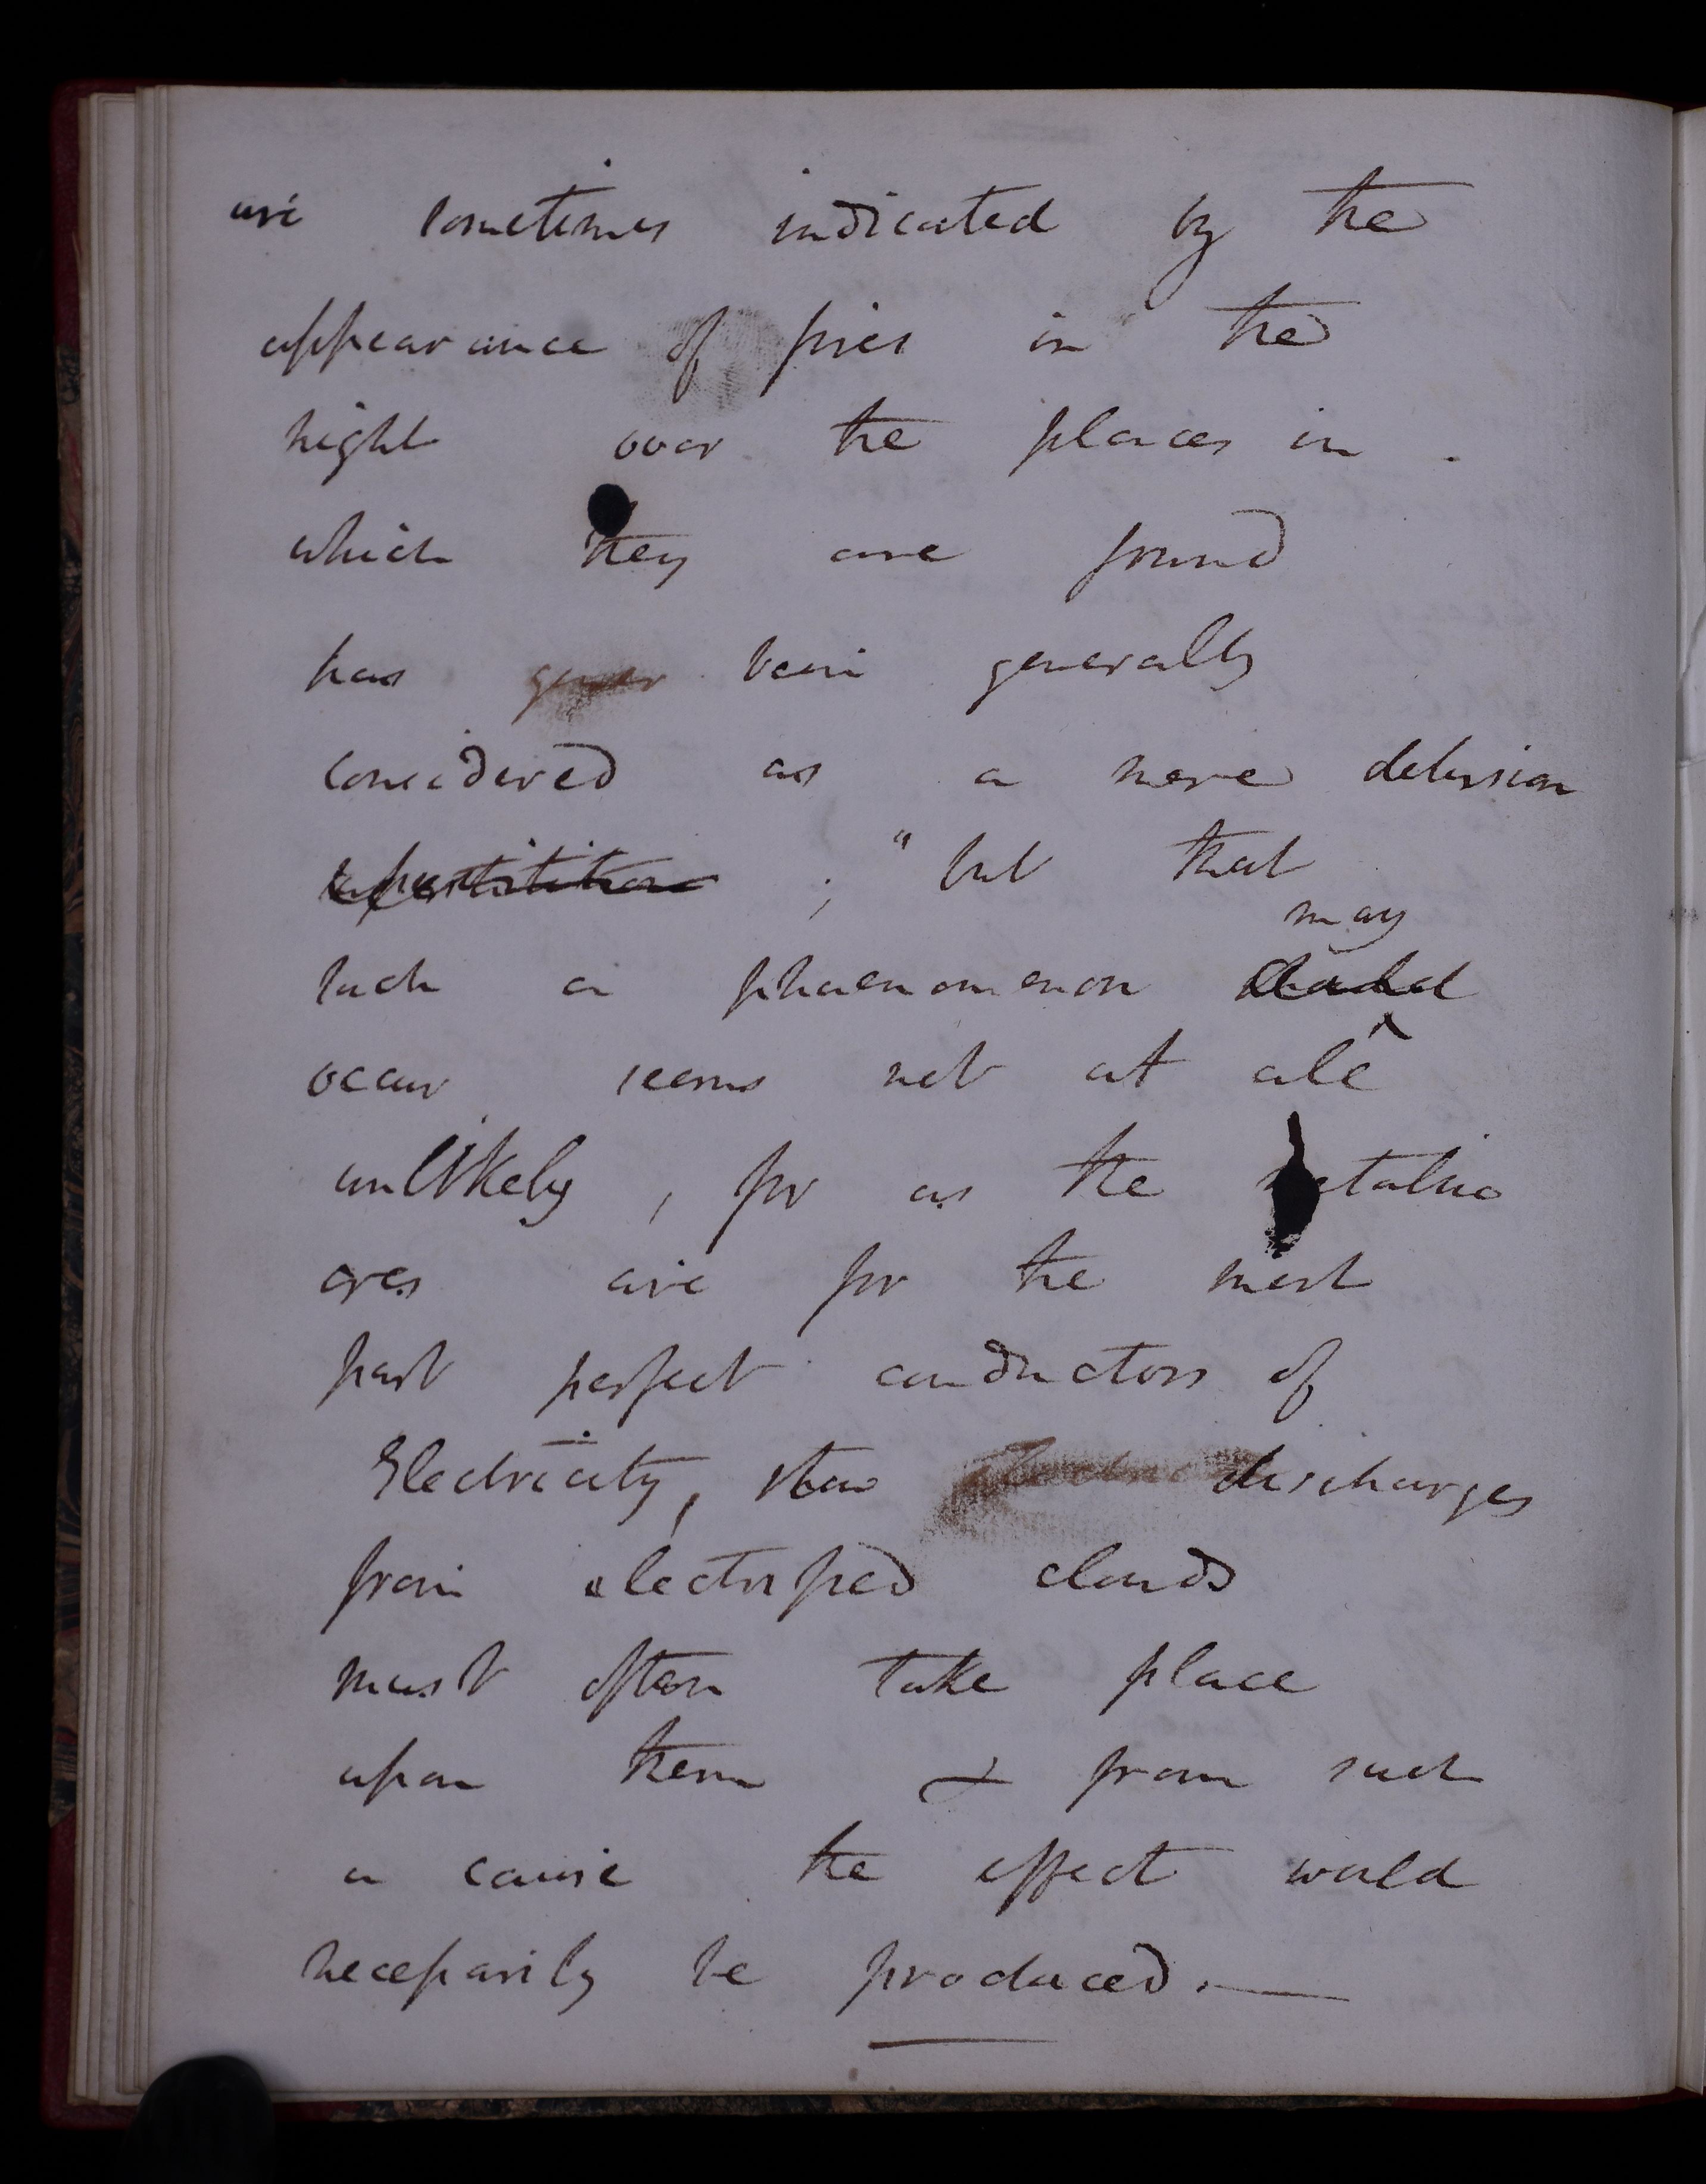 are sometimes indicated by the
appearance of fires in the
night over the places in
which they are found
has been generally
considered as a mere delusion
superstitition ; " but that
may
such a phaenomenon should
occur seems not at all
unlikely, for as the metallic
ores are for the most
part perfect conductors of
Electricity, slow discharges
from electrified clouds
must often take place
upon them & from such
a cause the effect would
necessarily be produced. —